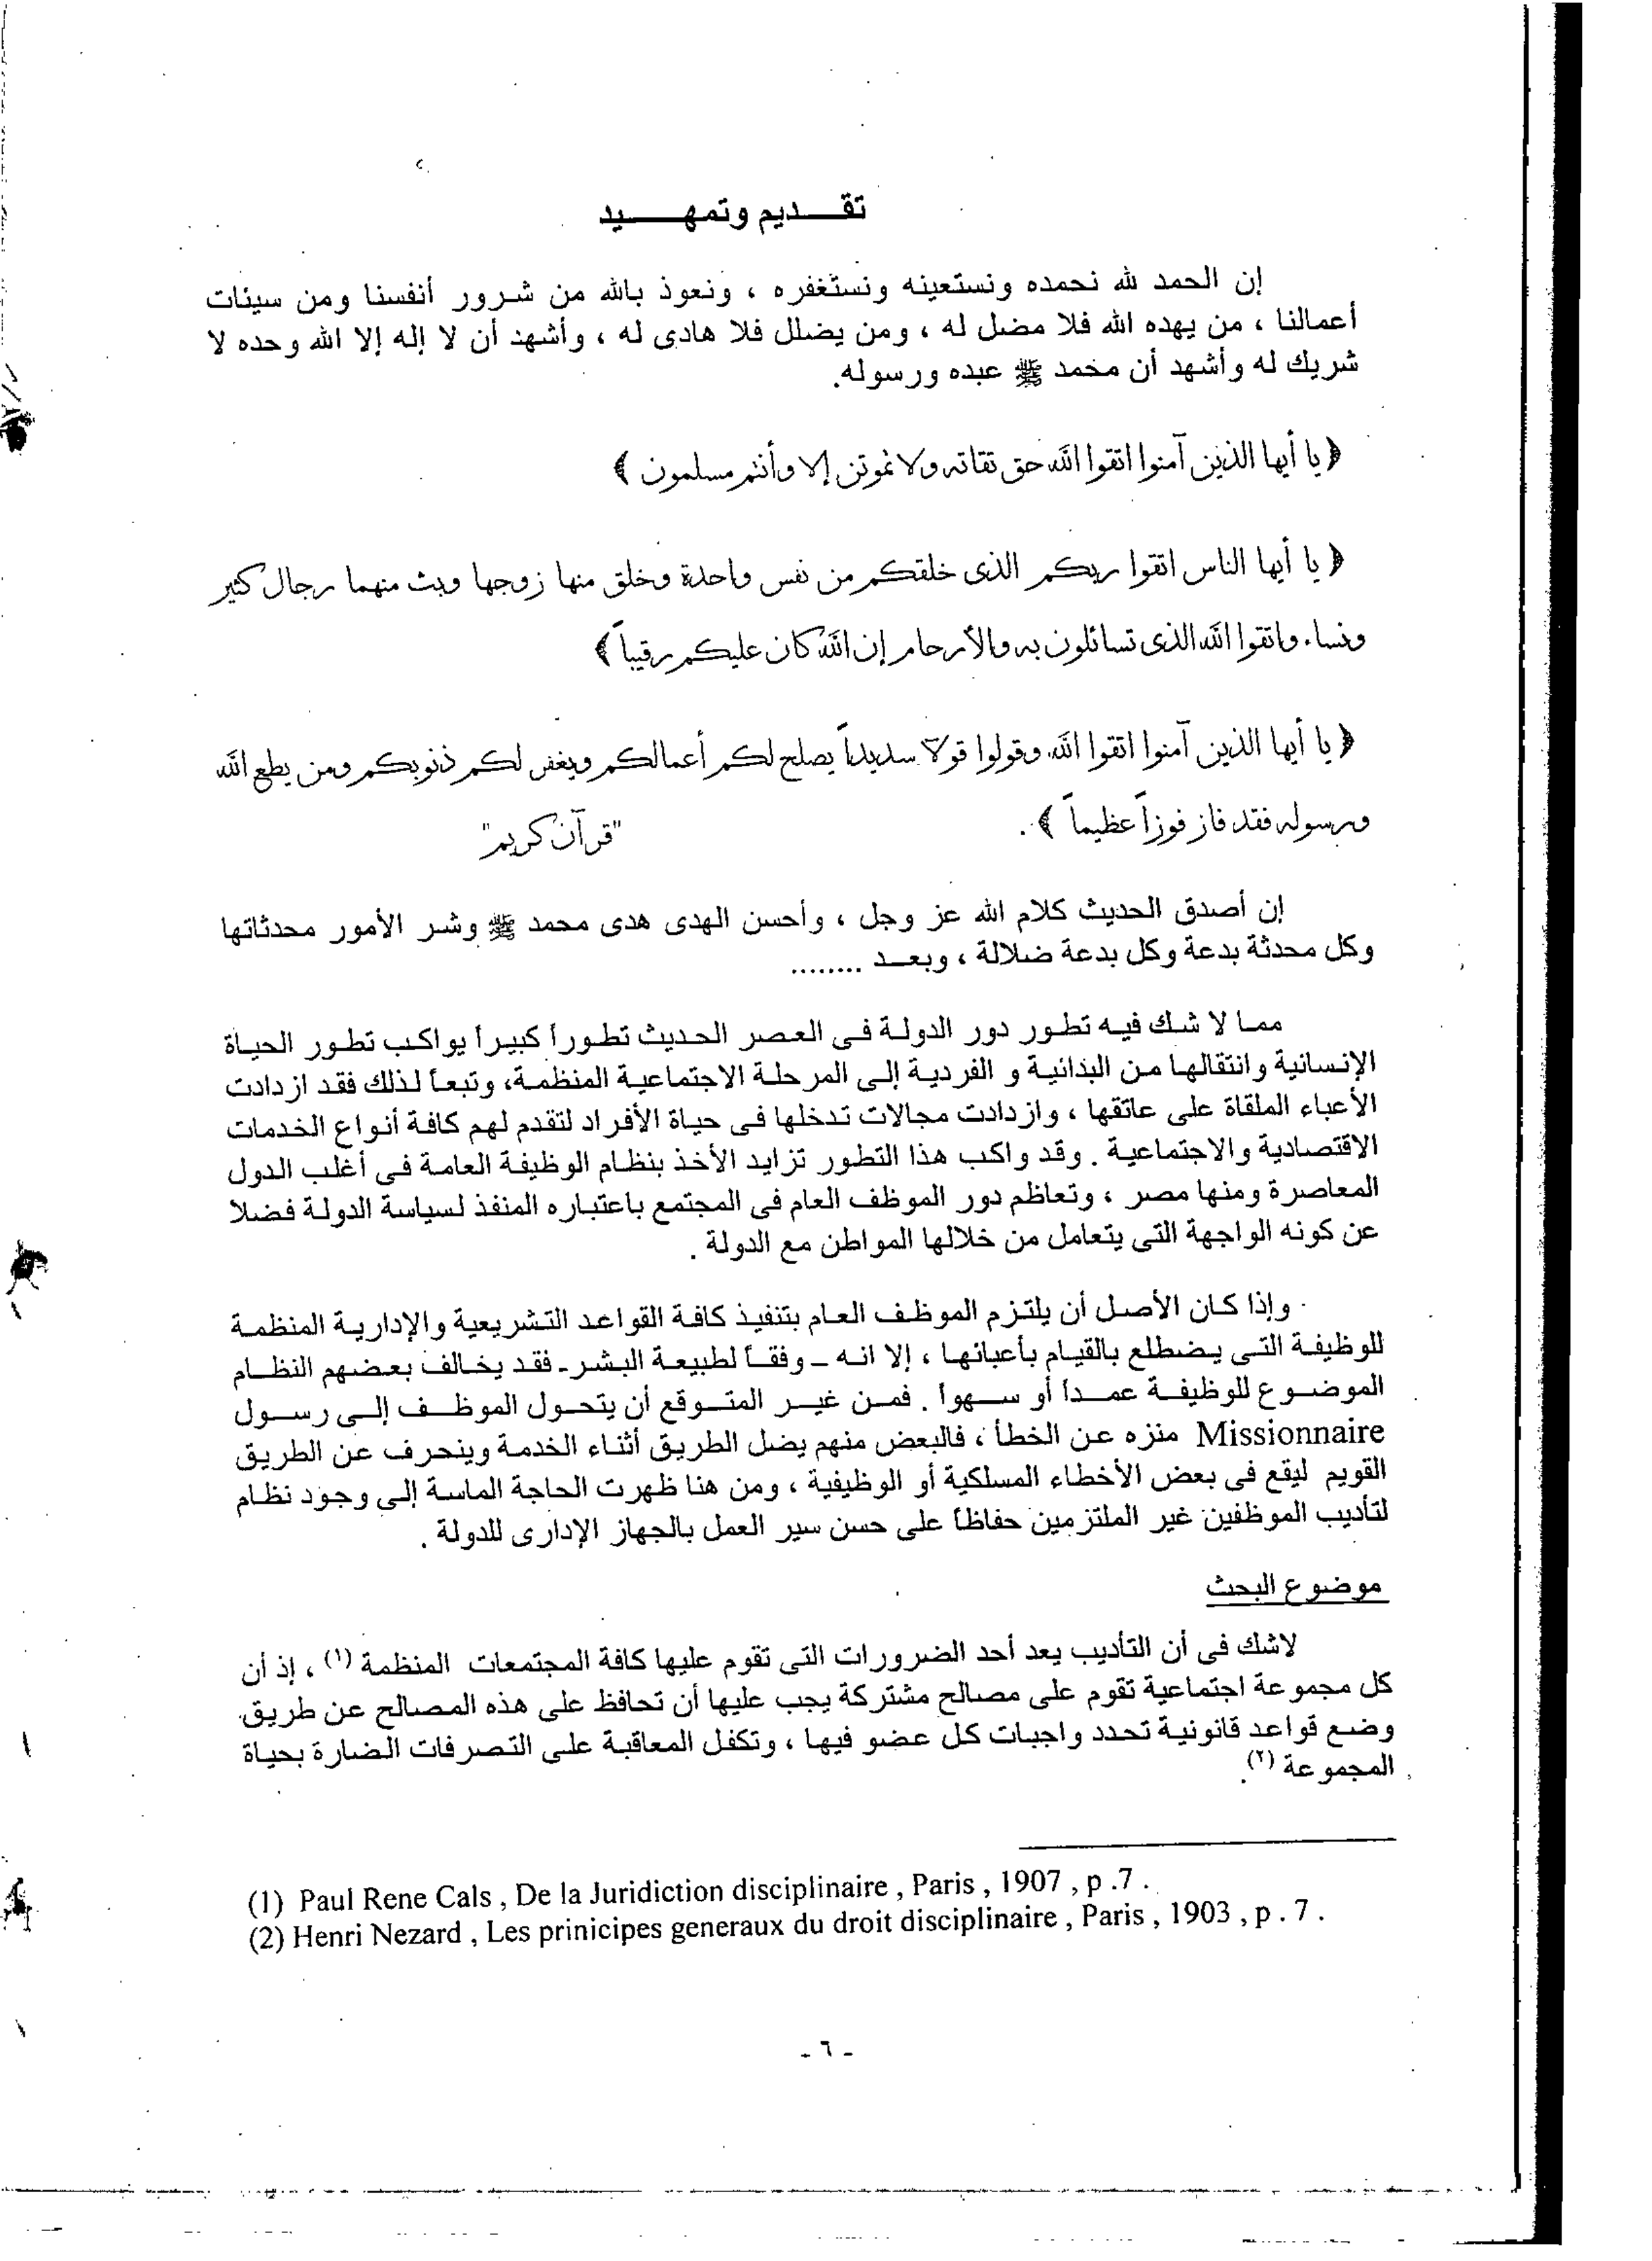 تقـــديم وتمهـــــيد
إن الحمد لله نحمده ونستعينه ونستغفره ، ونعوذ بالله من شرور أنفسنا ومن سيئات
أعمالنا ، من يهده الله فلا مضل له ، ومن يضلل فلا هادى له ، وأشهد أن لا إله إلا الله وحده لا
شريك له وأشهد أن محمد ﷺ عبده ورسوله.
﴿ يا أيها الذين آمنوا اتقوا الله حق تقاته ولا تموتن إلا وأنتم مسلمون ﴾
﴿ يا أيها الناس اتقوا ربكم الذى خلقكم من نفس واحدة وخلق منها زوجها وبث منهما رجال كثير
ونساء واتقوا الله الذى تسائلون به والأرحام إن الله كان عليكم رقيباً ﴾
﴿ يا أيها الذين آمنوا اتقوا الله وقولوا قولاً سديداً يصلح لكم أعمالكم ويغفر لكم ذنوبكم ومن يطع الله
ورسوله فقد فاز فوزاً عظيماً ﴾ .
"قرآن كريم"
إن أصدق الحديث كلام الله عز وجل ، وأحسن الهدى هدى محمد ﷺ وشر الأمور محدثاتها
وكل محدثة بدعة وكل بدعة ضلالة ، وبعـد ........
مما لا شك فيه تطور دور الدولة فى العصر الحديث تطوراً كبيراً يواكب تطور الحياة
الإنسانية وانتقالها من البدائية و الفردية إلى المرحلة الاجتماعية المنظمة، وتبعاً لذلك فقد ازدادت
الأعباء الملقاة على عاتقها ، وازدادت مجالات تدخلها فى حياة الأفراد لتقدم لهم كافة أنواع الخدمات
الاقتصادية والاجتماعية . وقد واكب هذا التطور تزايد الأخذ بنظام الوظيفة العامة فى أغلب الدول
المعاصرة ومنها مصر ، وتعاظم دور الموظف العام فى المجتمع باعتباره المنفذ لسياسة الدولة فضلا
عن كونه الواجهة التى يتعامل من خلالها المواطن مع الدولة .
وإذا كان الأصل أن يلتزم الموظف العام بتنفيذ كافة القواعد التشريعية والإدارية المنظمة
للوظيفة التى يضطلع بالقيام بأعبائها ، إلا انه – وفقاً لطبيعة البشر- فقد يخالف بعضهم النظام
الموضوع للوظيفة عمداً أو سهواً . فمن غير المتوقع أن يتحول الموظف إلى رسول
Missionnaire منزه عن الخطأ ، فالبعض منهم يضل الطريق أثناء الخدمة وينحرف عن الطريق
القويم ليقع فى بعض الأخطاء المسلكية أو الوظيفية ، ومن هنا ظهرت الحاجة الماسة إلى وجود نظام
لتأديب الموظفين غير الملتزمين حفاظاً على حسن سير العمل بالجهاز الإدارى للدولة .
موضوع البحث
لاشك فى أن التأديب يعد أحد الضرورات التى تقوم عليها كافة المجتمعات المنظمة (١) ، إذ أن
كل مجموعة اجتماعية تقوم على مصالح مشتركة يجب عليها أن تحافظ على هذه المصالح عن طريق
وضع قواعد قانونية تحدد واجبات كل عضو فيها ، وتكفل المعاقبة على التصرفات الضارة بحياة
المجموعة (٢).
(1) Paul Rene Cals , De la Juridiction disciplinaire , Paris , 1907 , p .7 .
(2) Henri Nezard , Les prinicipes generaux du droit disciplinaire , Paris , 1903 , p . 7 .
- ٦ -